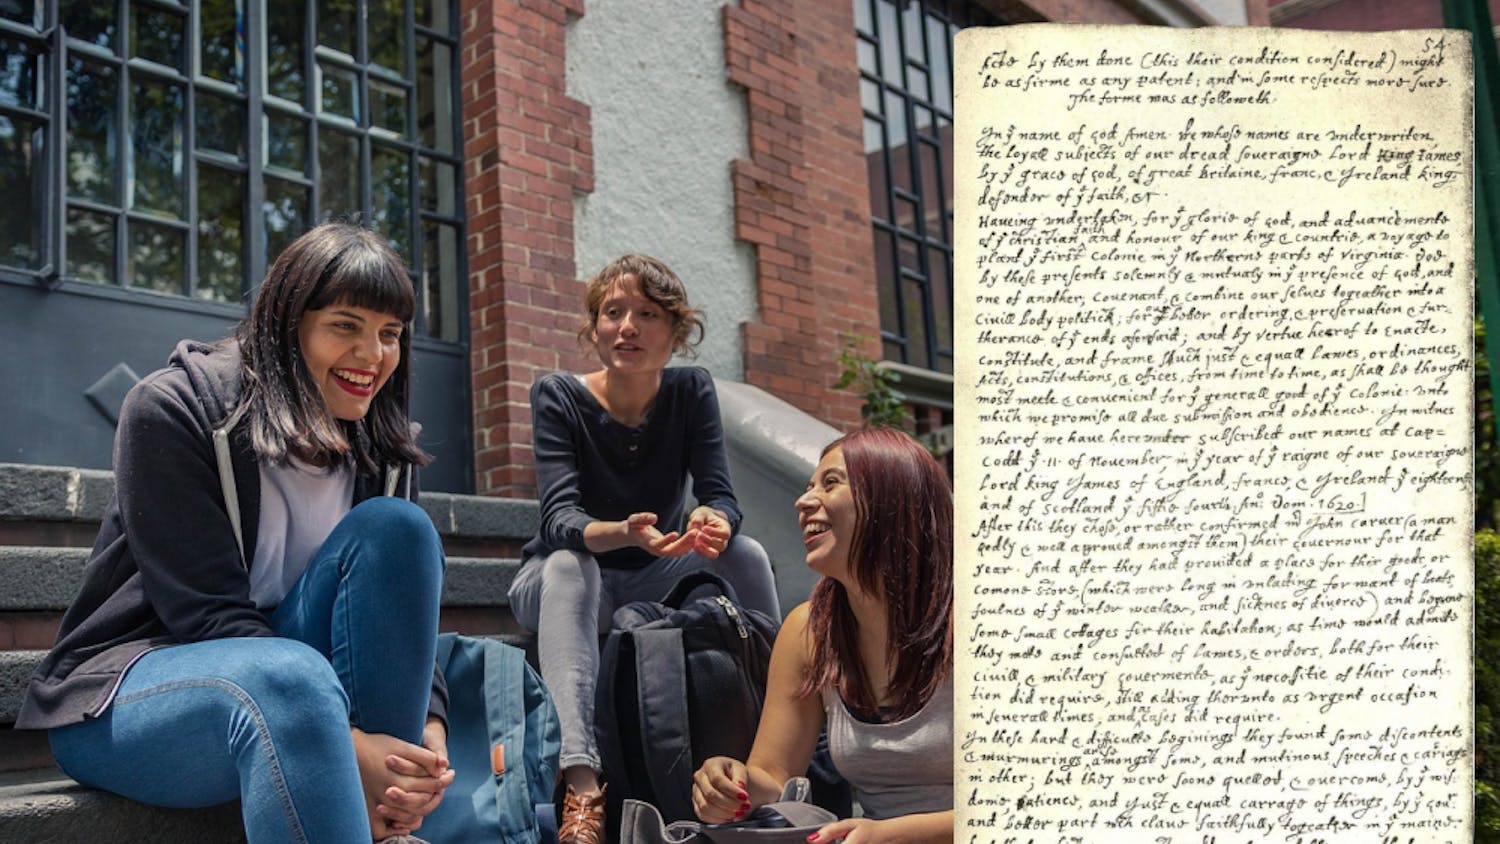 54
Acts by them done (this their condition considered) might
be as firme as any patent; and in some respects more sure.
The forme was as followeth.
In yͤ name of god Amen. We whose names are underwriten,
the loyall subjects of our dread soveraigne Lord King James
by yͤ grace of god, of great Britaine, franc, & Ireland king,
defender of yͤ faith, &c
Haveing undertaken, for yͤ glorie of god, and advancemente
of yͤ christian faith and honour of our king & countrie, a voyage to
plant yͤ first colonie in yͤ Northerne parts of Virginia. doe
by these presents solemnly & mutualy in yͤ presence of god, and
one of another, covenant, & combine our selves togeather into a
Civill body politick; for our better ordering, & preservation & fur-
therance of yͤ ends aforesaid; and by vertue hearof to enacte,
constitute, and frame such just & equall lawes, ordinances,
Acts, constitutions, & offices, from time to time, as shall be thought
most meete & convenient for yͤ generall good of yͤ Colonie: unto
which we promise all due submission and obedience. In witnes
wherof we have hereunder subscribed our names at Cap=
Codd yͤ .11. of November, in yͤ year of yͤ raigne of our soveraigne
Lord king James of England, france, & Ireland yͤ eighteenth
and of Scotland yͤ fiftie fourth. Ano: Dom. 1620.]
After this they chose, or rather confirmed mr John carver (a man
godly & well approved amongst them) their governour for that
year. And after they had provided a place for their goods, or
comone store, (which were long in unlading for want of boats,
foulnes of yͤ winter weather, and sicknes of diverce) and begune
some small cottages for their habitation; as time would admitte
they mette and consulted of lawes, & orders, both for their
civill & military govermente, as yͤ necessitie of their condi-
tion did require, still adding therunto as urgent occasion
in severall times, and as cases did require.
In these hard & difficulte beginings they found some discontents
& murmurings arise amongst some, and mutinous speeches & cariags
in other; but they were soone quelled, & overcome, by yͤ wis-
dome, patience, and just & equall carrage of things, by yͤ gov
and better part wch clave faithfully togeather in yͤ maine.